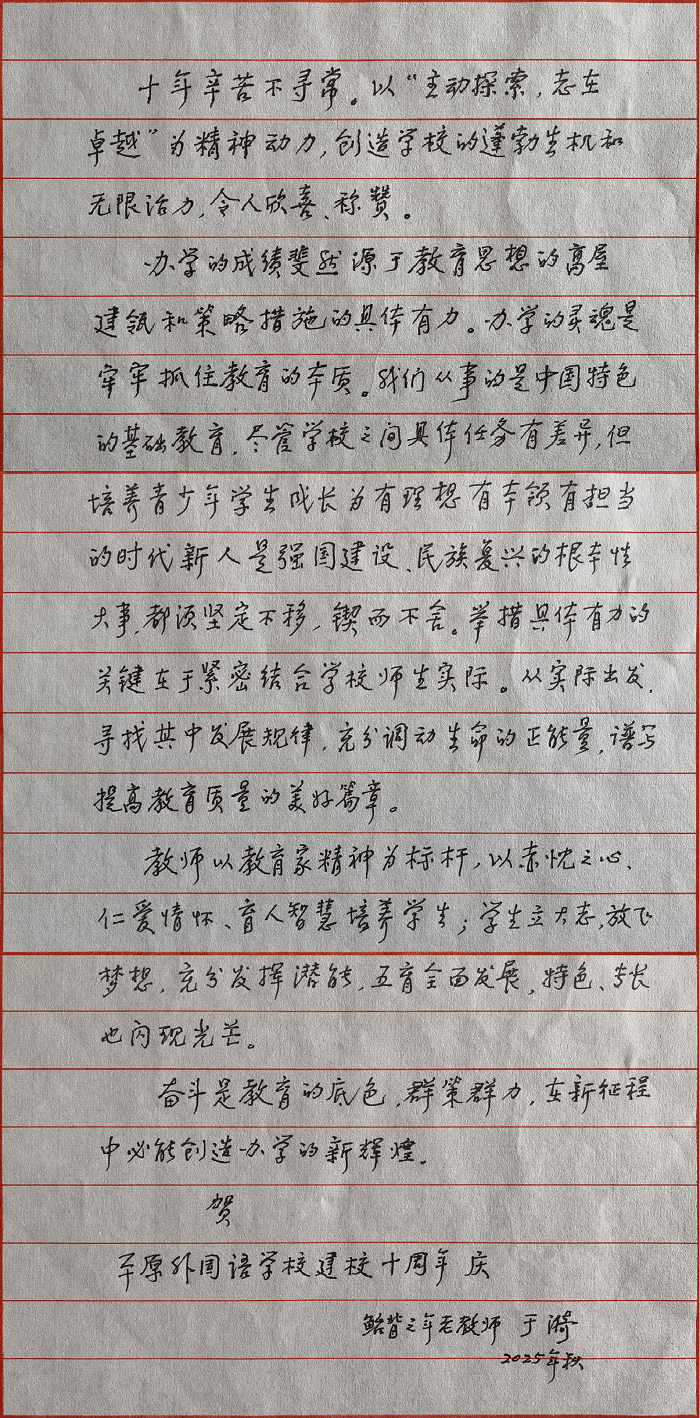 十年辛苦不寻常。以“主动探索，志在
卓越”为精神动力，创造学校的蓬勃生机和
无限活力，令人欣喜、称赞。
办学的成绩斐然源于教育思想的高屋
建瓴和策略措施的具体有力。办学的灵魂是
牢牢抓住教育的本质。我们从事的是中国特色
的基础教育，尽管学校之间具体任务有差异，但
培养青少年学生成长为有理想有本领有担当
的时代新人是强国建设、民族复兴的根本性
大事，都须坚定不移，锲而不舍。举措具体有力的
关键在于紧密结合学校师生实际。从实际出发，
寻找其中发展规律，充分调动生命的正能量，谱写
提高教育质量的美好篇章。
教师以教育家精神为标杆，以赤忱之心、
仁爱情怀、育人智慧培养学生；学生立大志，放飞
梦想，充分发挥潜能，五育全面发展，特色、专长
也闪现光芒。
奋斗是教育的底色，群策群力，在新征程
中必能创造办学的新辉煌。
贺
平原外国语学校建校十周年庆
鲐背之年老教师 于漪
2025年秋